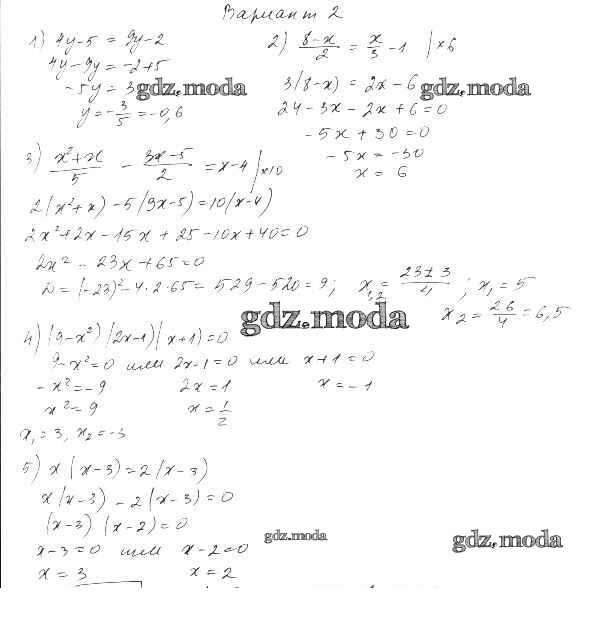 Вариант 2
1) 4y-5 = 9y-2
4y-9y = -2+5
-5y = 3
y = -3/5 = -0,6
2) (8-x)/2 = x/3 - 1 | ×6
3(8-x) = 2x-6
24-3x-2x+6=0
-5x+30=0
-5x=-30
x = 6
3) (x²+x)/5 - (3x-5)/2 = x-4 | ×10
2(x²+x)-5(3x-5)=10(x-4)
2x²+2x-15x+25-10x+40=0
2x²-23x+65=0
D=(-23)²-4·2·65=529-520=9; x₁,₂ = (23±3)/4; x₁=5
x₂=26/4=6,5
4) (9-x²)(2x-1)(x+1)=0
9-x²=0 или 2x-1=0 или x+1=0
-x²=-9 2x=1 x=-1
x²=9 x=1/2
x₁=3, x₂=-3
5) x(x-3)=2(x-3)
x(x-3)-2(x-3)=0
(x-3)(x-2)=0
x-3=0 или x-2=0
x=3 x=2
gdz.moda
gdz.moda
gdz.moda
gdz.moda
gdz.moda